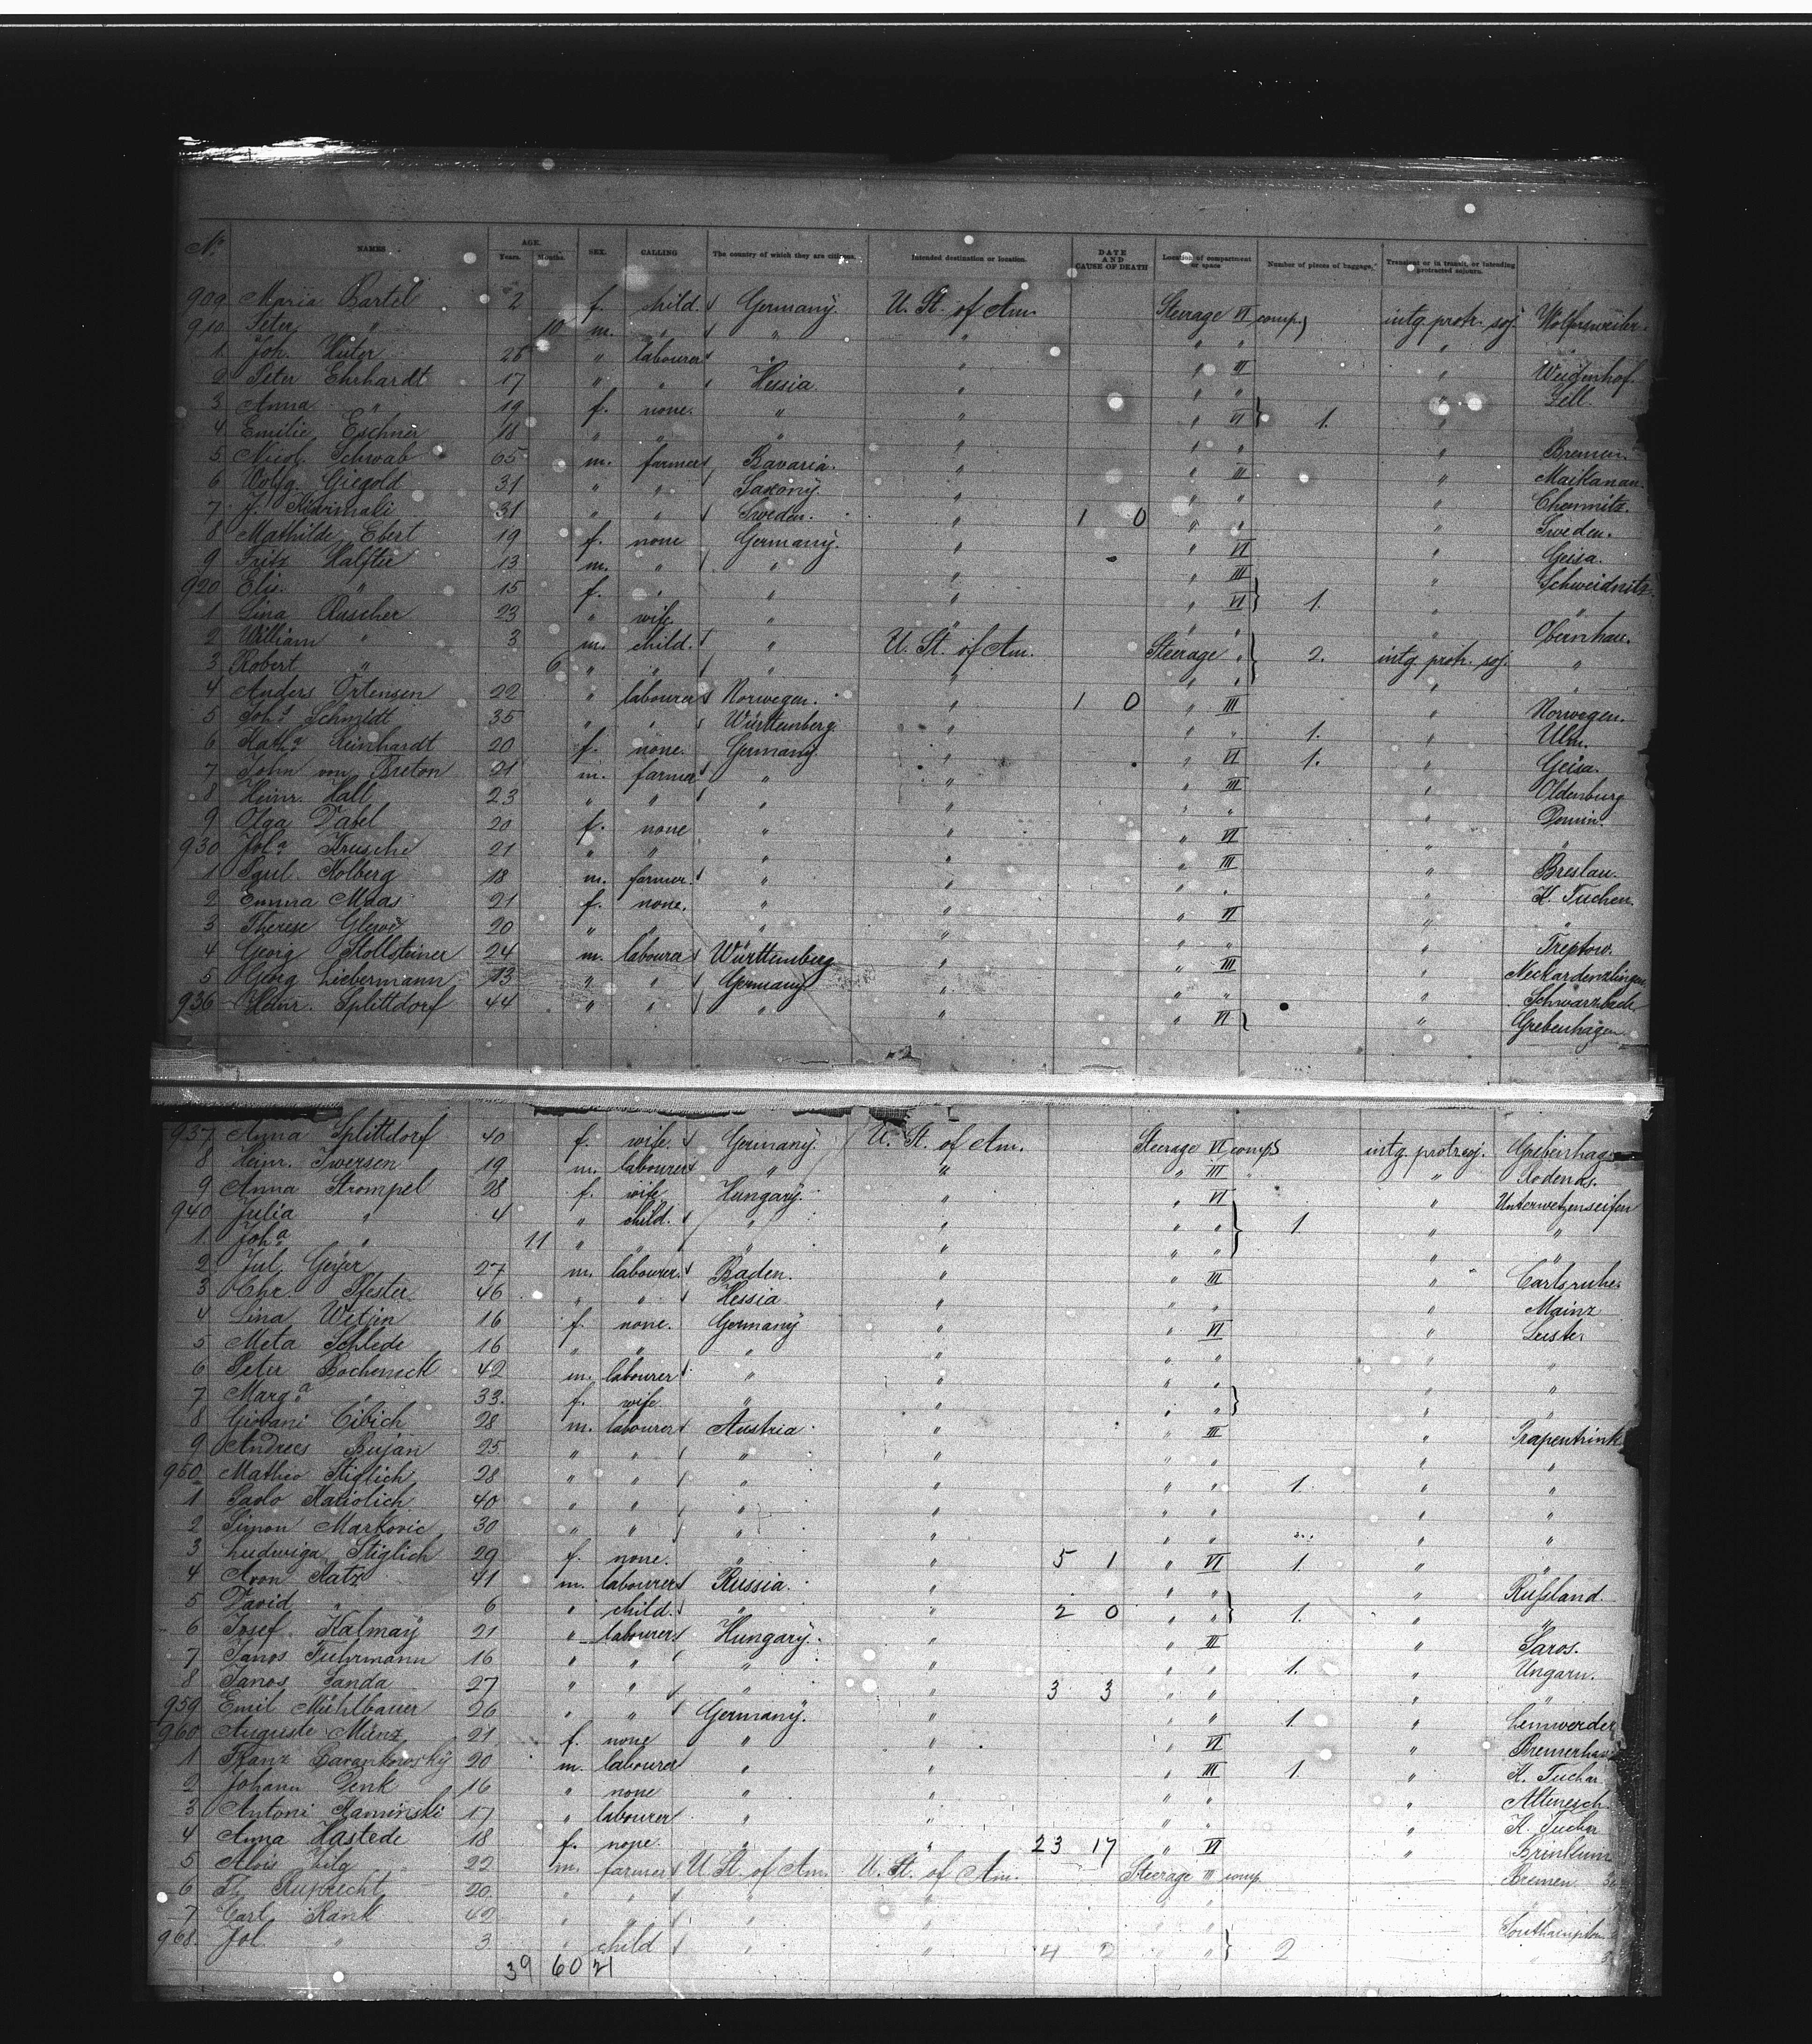 No. NAMES AGE. Years. Months. SEX. CALLING The country of which they are citizens. Intended destination or location. DATE AND CAUSE OF DEATH Location of compartment or space Number of pieces of baggage. Transient or in transit, or intending protracted sojourn.
909 Maria Bartel 2 f. child. Germany. U. St. of Am. Steerage VI comp. intg. protr. soj. Wolfersweiler
910 Peter " 10 m. " " " " " "
1 Joh. Huter " labourer " " " III " Weidenhof.
2 Peter Ehrhardt 17 " " Hessia " " " " Zell.
3 Anna " 19 f. none. " " " VI 1. "
4 Emilie Eschner 18 " " " " " " " Bremen
5 Nicol. Schwab 65 m. farmer Bavaria. " " III "
6 Wolfg. Giegold 31 " " Saxony. " " " " Chemnitz.
7 J. 31 " " Sweden. " 1 0 " " " Sweden.
8 Mathilde Ebert 19 f. none Germany. " " VI " Geisa.
9 Fritz Halfter 13 m. " " " " III " Schweidnitz.
920 Elis. " 15 f. " " " " VI 1. " "
1 Lina Ruscher 23 " wife. " " " " " Obernhau.
2 William " 3 m. child. " U. St. of Am. Steerage " 2. intg. protr. soj. "
3 Robert " 6 " " " " " " " "
4 Anders Ortensen 22 " labourer Norwegen. " 1 0 " III " Norwegen.
5 Johs Schmidt 35 " " Württemberg. " " " 1. " Ulm.
6 Katha Reinhardt 20 f. none. Germany. " " VI 1. " Geisa.
7 John von Breton 21 m. farmer " " " III " Oldenburg
8 Heinr. Hall 23 " " " " " " "
9 Olga Dabel 20 f. none " " " VI " "
930 Joha Krusche 21 " " " " " III " Breslau.
1 Paul Kolberg 18 m. farmer. " " " " " K. Tuchen
2 Emma Maas 21 f. none. " " " VI " "
3 Therese Glewe 20 " " " " " " " Treptow.
4 Georg Stollsteiner 24 m. labourer Württemberg " " III " Neckardenzlingen
5 Georg Liebermann 13 " " Germany " " " "
936 Heinr. Splittdorf 44 " " " " " VI " Grebenhagen
937 Anna Splittdorf 40 f. wife. Germany. U. St. of Am. Steerage VI comp. intg. protr. soj. Grebenhagen
8 Heinr. Iwersen 19 m. labourer " " " III " Rodenäs.
9 Anna Strompel 28 f. wife Hungary. " " VI " Unterwetzenseifen
940 Julia " 4 " child. " " " " 1 " "
1 Joha " 11 " " " " " " " "
2 Jul. Geyer 27 m. labourer. Baden. " " III " Carlsruhe.
3 Chr. Pfester 46 " " Hessia. " " " " Mainz
4 Lina Witjen 16 f. none. Germany " " VI "
5 Meta Schlede 16 " " " " " " " "
6 Peter 42 m. labourer " " " " " "
7 Marga " 33. f. wife " " " " "
8 Giovani Cibich 28 m. labourer Austria " " III "
9 Andrees Bujan 25 " " " " " " " "
950 Matheo Stiglich 28 " " " " " " 1. " "
1 Paolo Matiolich 40 " " " " " " " "
2 Simon Markovic 30 " " " " " " " "
3 Ludwiga Stiglich 29 f. none. " " 5 1 " VI 1. " "
4 Aron Katz 41 m. labourer Russia. " " " " Rußland.
5 David " 6 " child. " " 2 0 " " 1. " "
6 Josef Kalmay 21 " labourer Hungary. " " III " Saros.
7 Janos Fuhrmann 16 " " " " " " 1. " Ungarn.
8 Janos Janda 27 " " " " 3 3 " " " "
959 Emil Mühlbauer 26 " " Germany. " " " 1. " Lemwerder
960 Auguste Münz 21 f. none " " " VI " Bremerhav
1 Franz 20 m. labourer " " " III 1. " K. Tuchar
2 Johann Denk 16 " none " " " " " Altenesch.
3 Antoni Kaminski 17 " labourer " " " " " K. Tuchar
4 Anna Hastede 18 f. none. " " 23 17 " VI " Brinkum
5 Alois Zilg 22 m. farmer U. St. of Am. U. St. of Am. Steerage III comp. Bremen
6 Th. Ruprecht 20. " " " " " " "
7 Carl Rank 42 " " " " " " Southampton
968. Jol. " 3 " child " " 4 2 " " 2 "
39 60 21